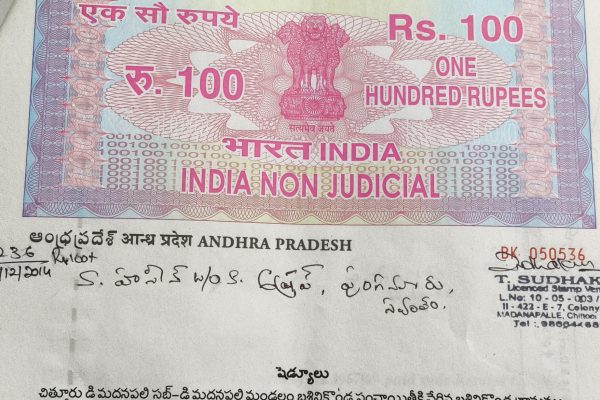 एक सौ रुपये
Rs. 100
रु. 100
ONE
HUNDRED RUPEES
सत्यमेव जयते
भारत INDIA
INDIA NON JUDICIAL
ఆంధ్రప్రదేశ్ आन्ध्र प्रदेश ANDHRA PRADESH
BK 050536
236 Rs 100t
/12/2014
T. SUDHAK
Licenced Stamp Ven
L.No: 10 - 05 - 003 /
11 - 422 - E - 7, Colony
MADANAPALLE, Chittoo
Tel :
W/O పుంగనూరు,
స్వంతం.
షెడ్యూలు
చిత్తూరు డి మదనపల్లి సబ్-డి మదనపల్లి మండలం బసినికొండ పంచాయితీకి చేరిన బసినికొండ